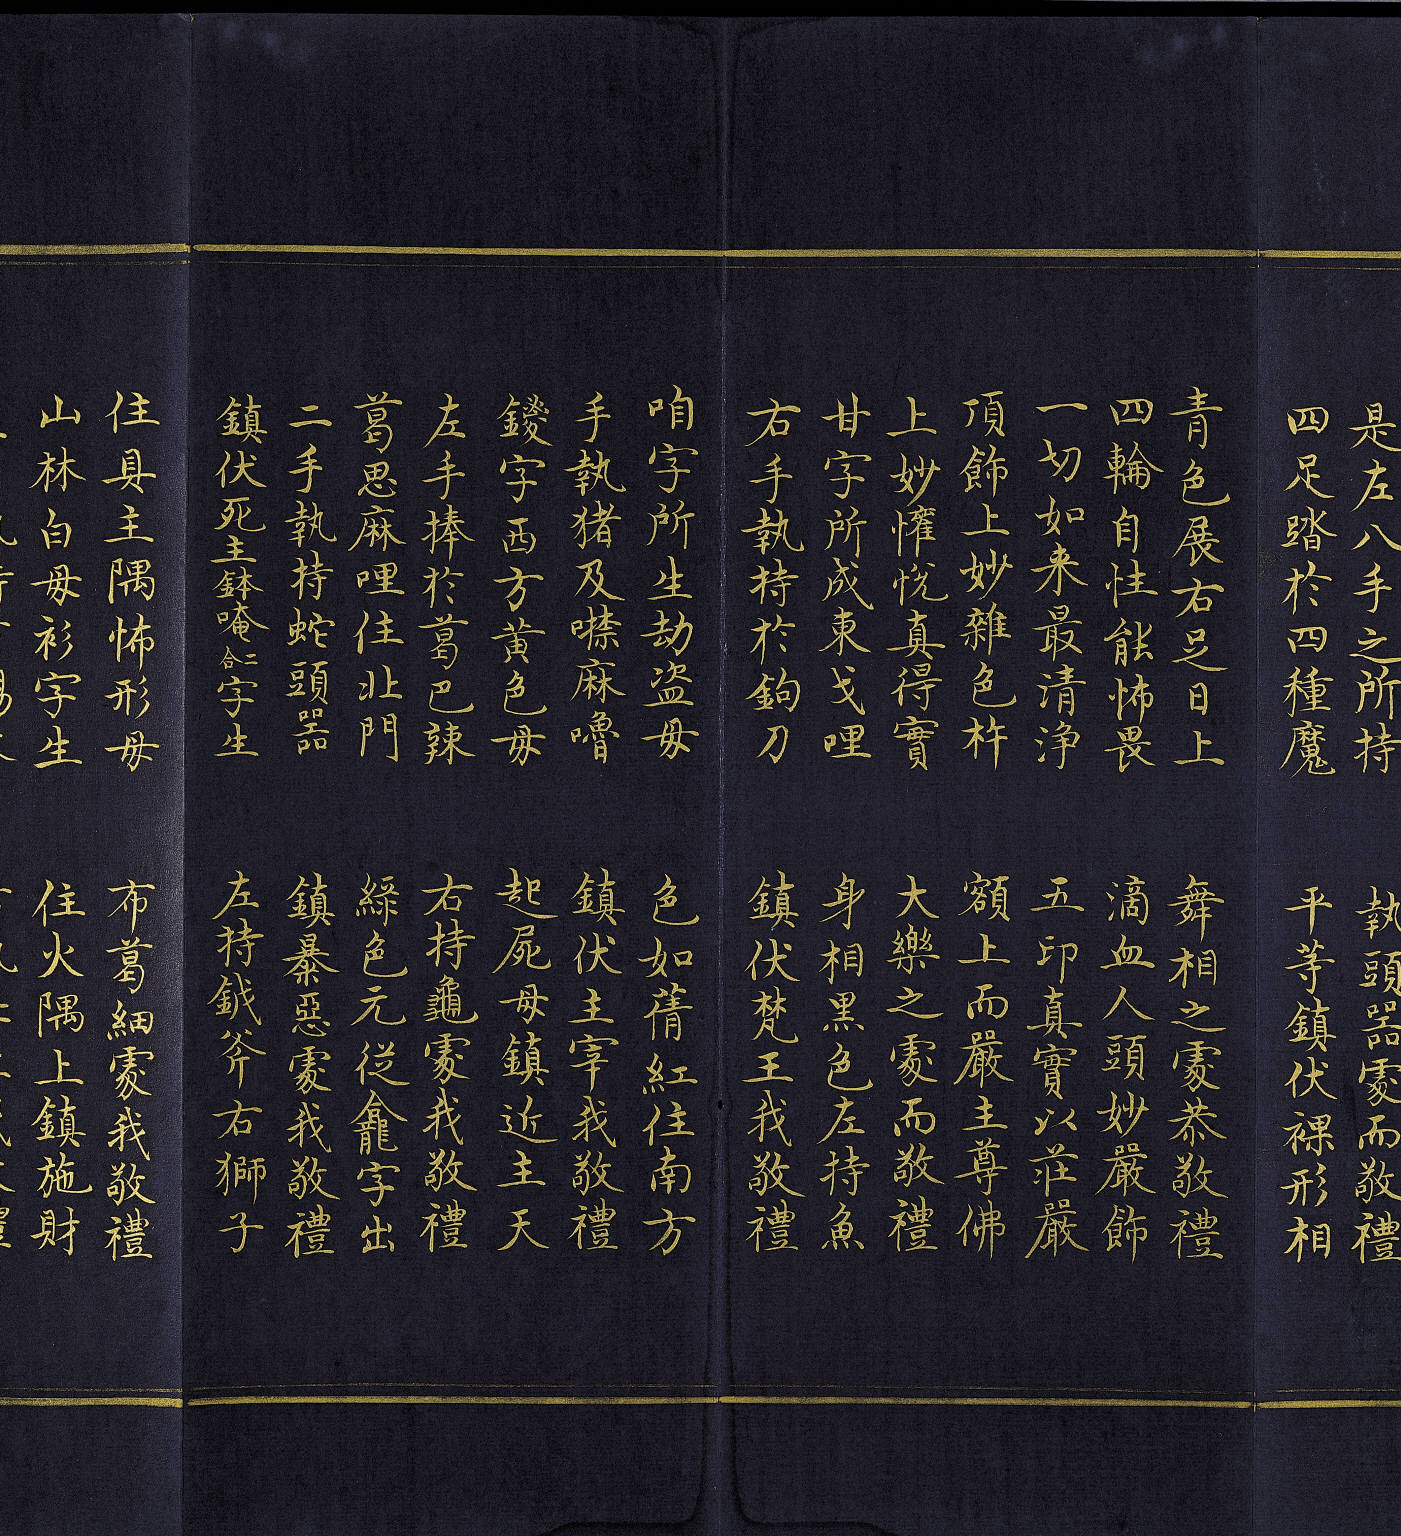 是左八手之所持　執頭器處而敬禮
四足踏於四種魔　平等鎮伏裸形相
青色展右足日上　舞相之處恭敬禮
四輪自性能怖畏　滴血人頭妙嚴飾
一切如来最清淨　五印真實以莊嚴
頂飾上妙雜色杵　額上而嚴主尊佛
上妙懽悅真得實　大樂之處而敬禮
甘字所成東戈哩　身相黑色左持魚
右手執持於鉤刀　鎮伏梵王我敬禮
咱字所生劫盜毋　色如蒨紅住南方
手執猪及噤麻嚕　鎮伏主宰我敬禮
鑁字西方黄色毋　起屍毋鎮近主天
左手捧於葛巴辣　右持龜處我敬禮
葛思麻哩住北門　綠色元從龕字出
二手執持蛇頭器　鎮暴惡處我敬禮
鎮伏死主鉢唵二合字生　左持鉞斧右獅子
住具主隅怖形毋　布葛細處我敬禮
山林白毋衫字生　住火隅上鎮施財